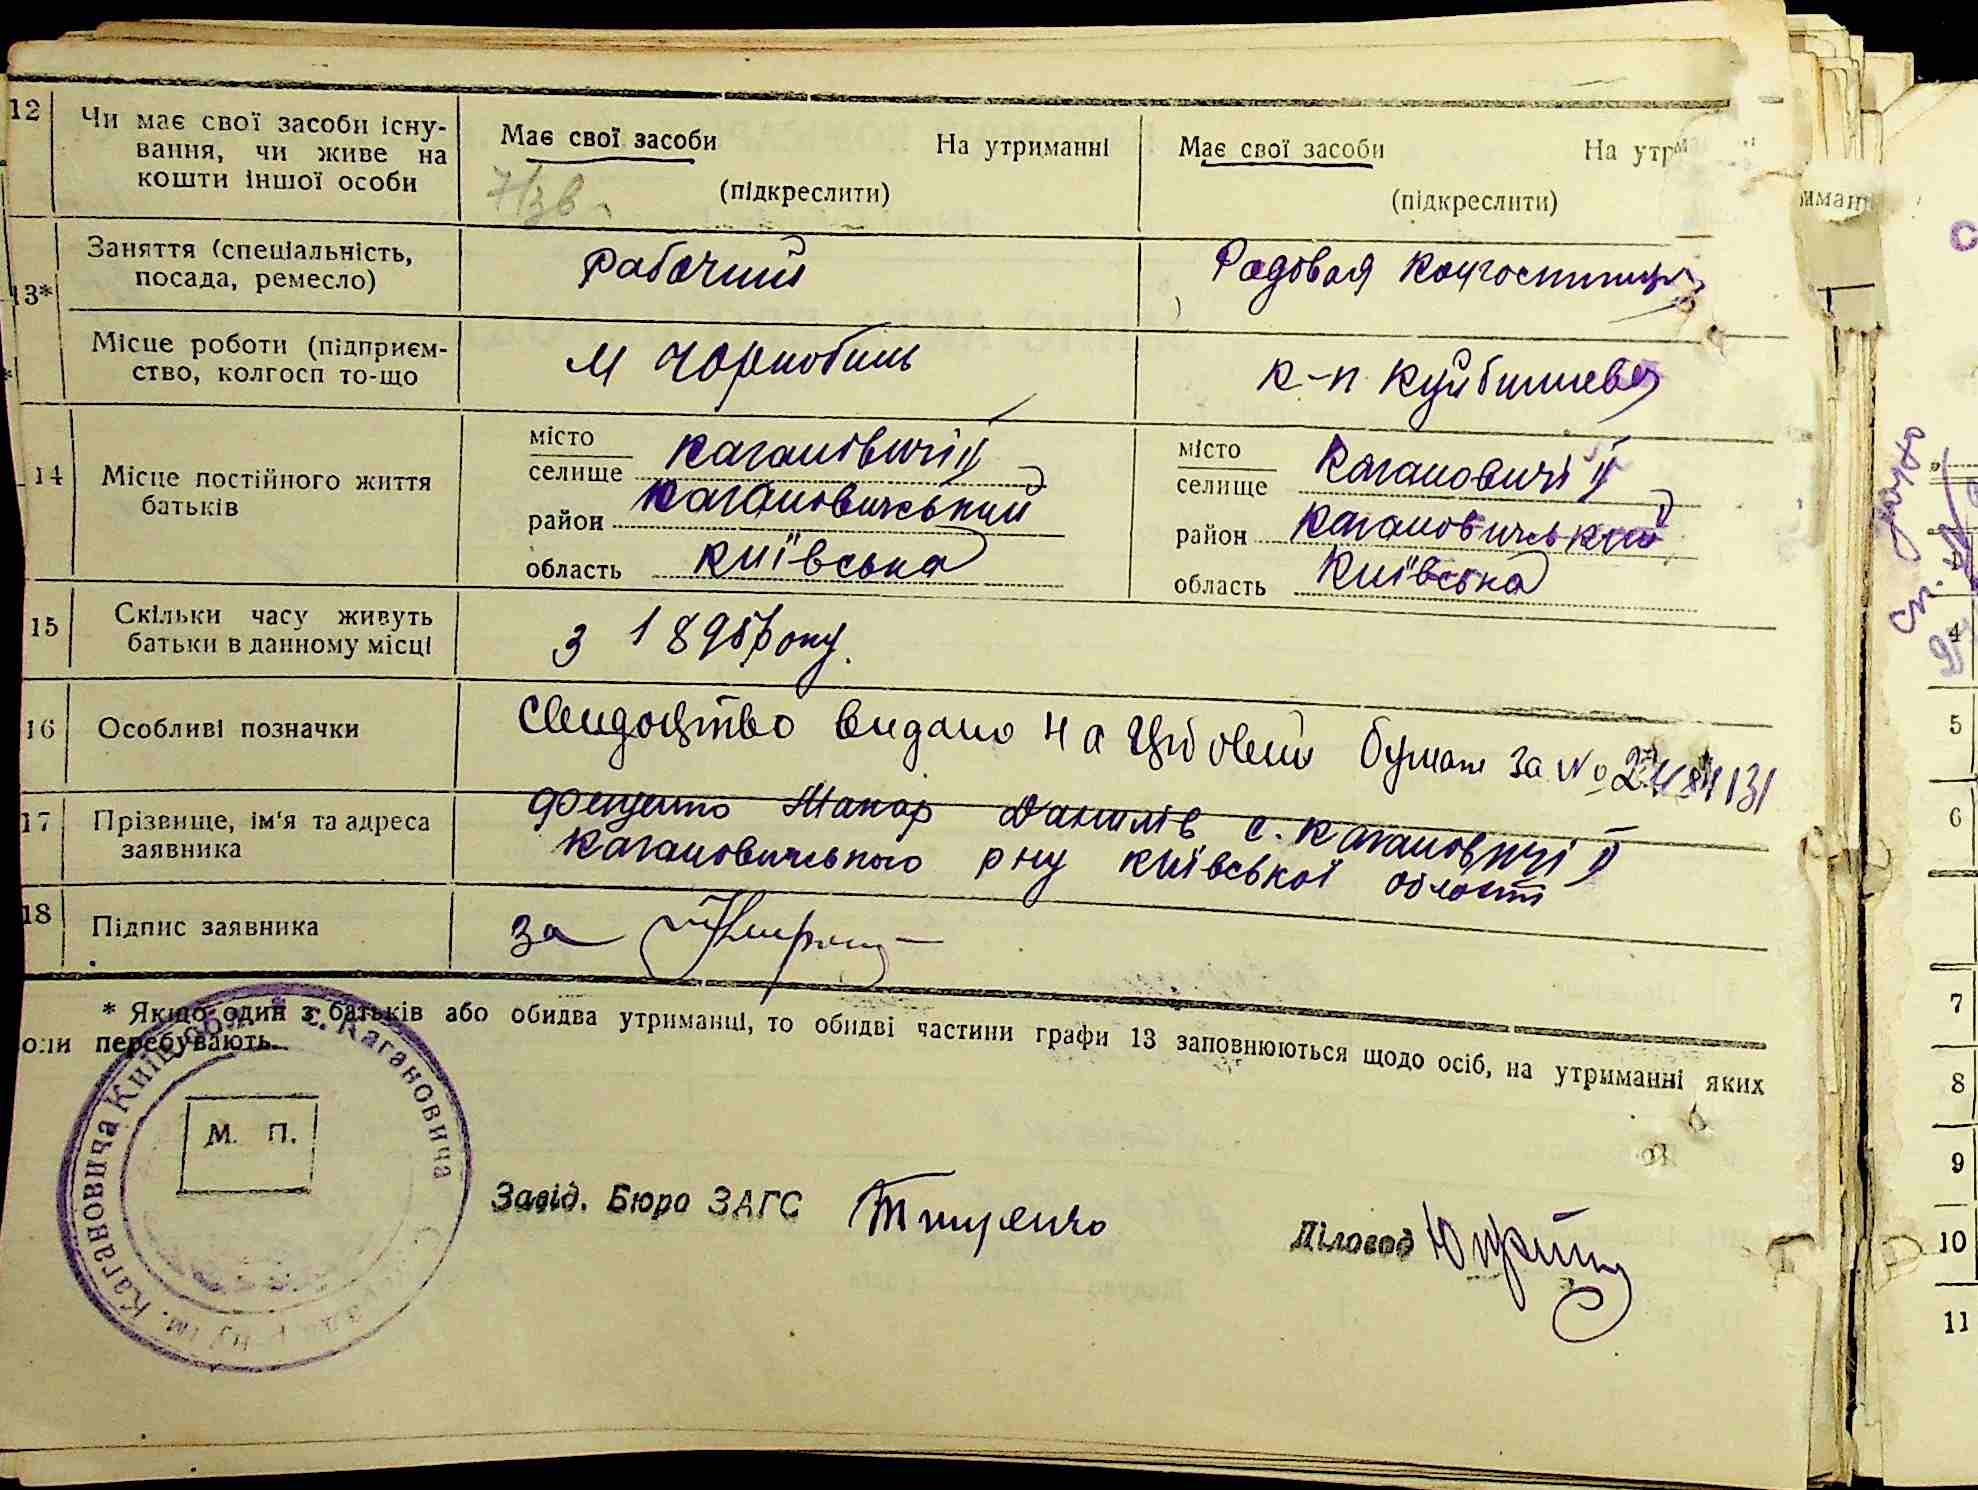 12 Чи має свої засоби існу-
вання, чи живе на
кошти іншої особи
Має свої засоби На утриманні
(підкреслити)
Має свої засоби На утрим
(підкреслити)
13* Заняття (спеціальність,
посада, ремесло)
Рабочий
Радовая колгоспниця
Місце роботи (підприєм-
ство, колгосп то-що
м Чорнобиль
к-п Куйбишева
14 Місце постійного життя
батьків
місто
селище Кагановичі ІІ
район Кагановичський
область Київська
місто
селище Кагановичі ІІ
район Кагановичський
область Київська
15 Скільки часу живуть
батьки в данному місці
з 1895 року.
16 Особливі позначки
Свидоцтво видано на бумазі за №
17 Прізвище, ім'я та адреса
заявника
Макар Данилів с. Кагановичі ІІ
Кагановичського р ну Київської області
18 Підпис заявника
за
* Якщо один з батьків або обидва утриманці, то обидві частини графи 13 заповнюються щодо осіб, на утриманні яких
они перебувають.
М. П.
с. Кагановича
ім. Кагановича Київ. обл.
Завід. Бюро ЗАГС Тищенко
Діловод
иманн
4
5
6
7
8
9
10
11